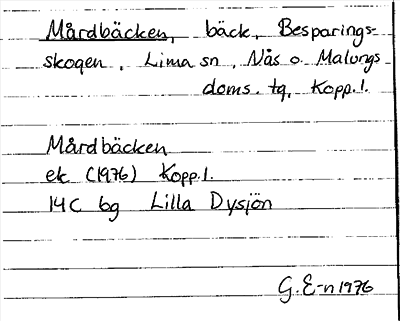 Mårdbäcken, bäck, Besparings-
skogen, Lima sn, Nås o Malungs
doms. tg, Kopp.l.
Mårdbäcken
ek (1976) Kopp.l.
14C bg Lilla Dysjön
G.E-n 1976